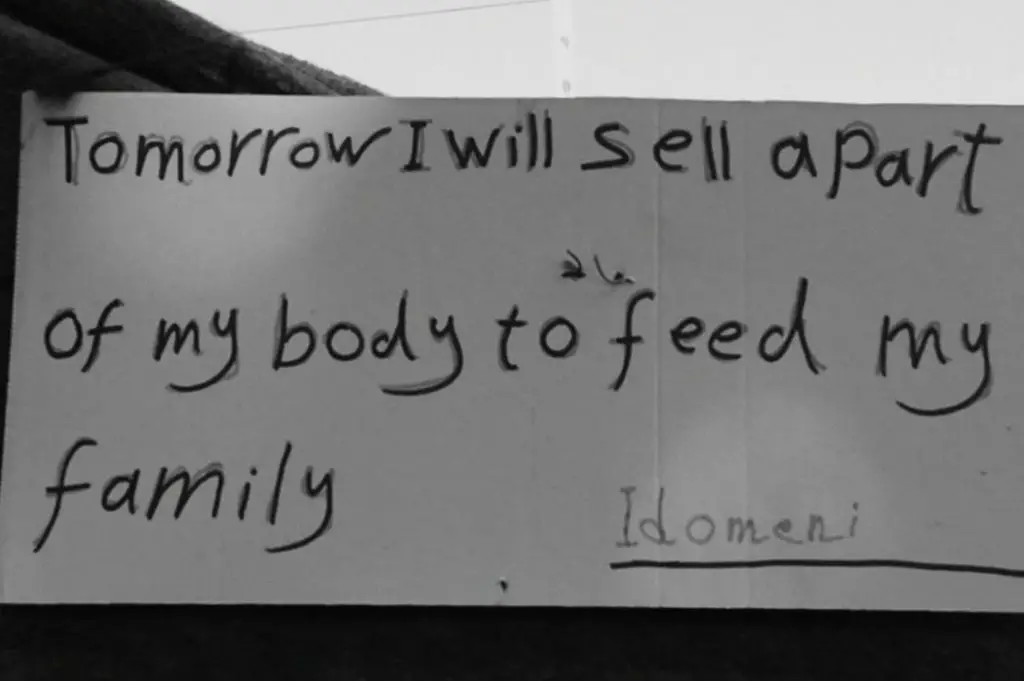 Tomorrow I will sell a part
of my body to feed my
family
Idomeni